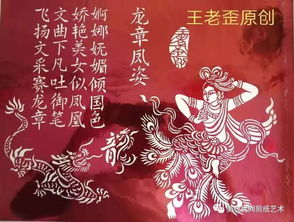 王老歪原创
龙章凤姿
婀娜妩媚倾国色
娇艳美女似凤凰
文曲下凡吐御笔
飞扬文采赛龙章
龍
剪纸艺术